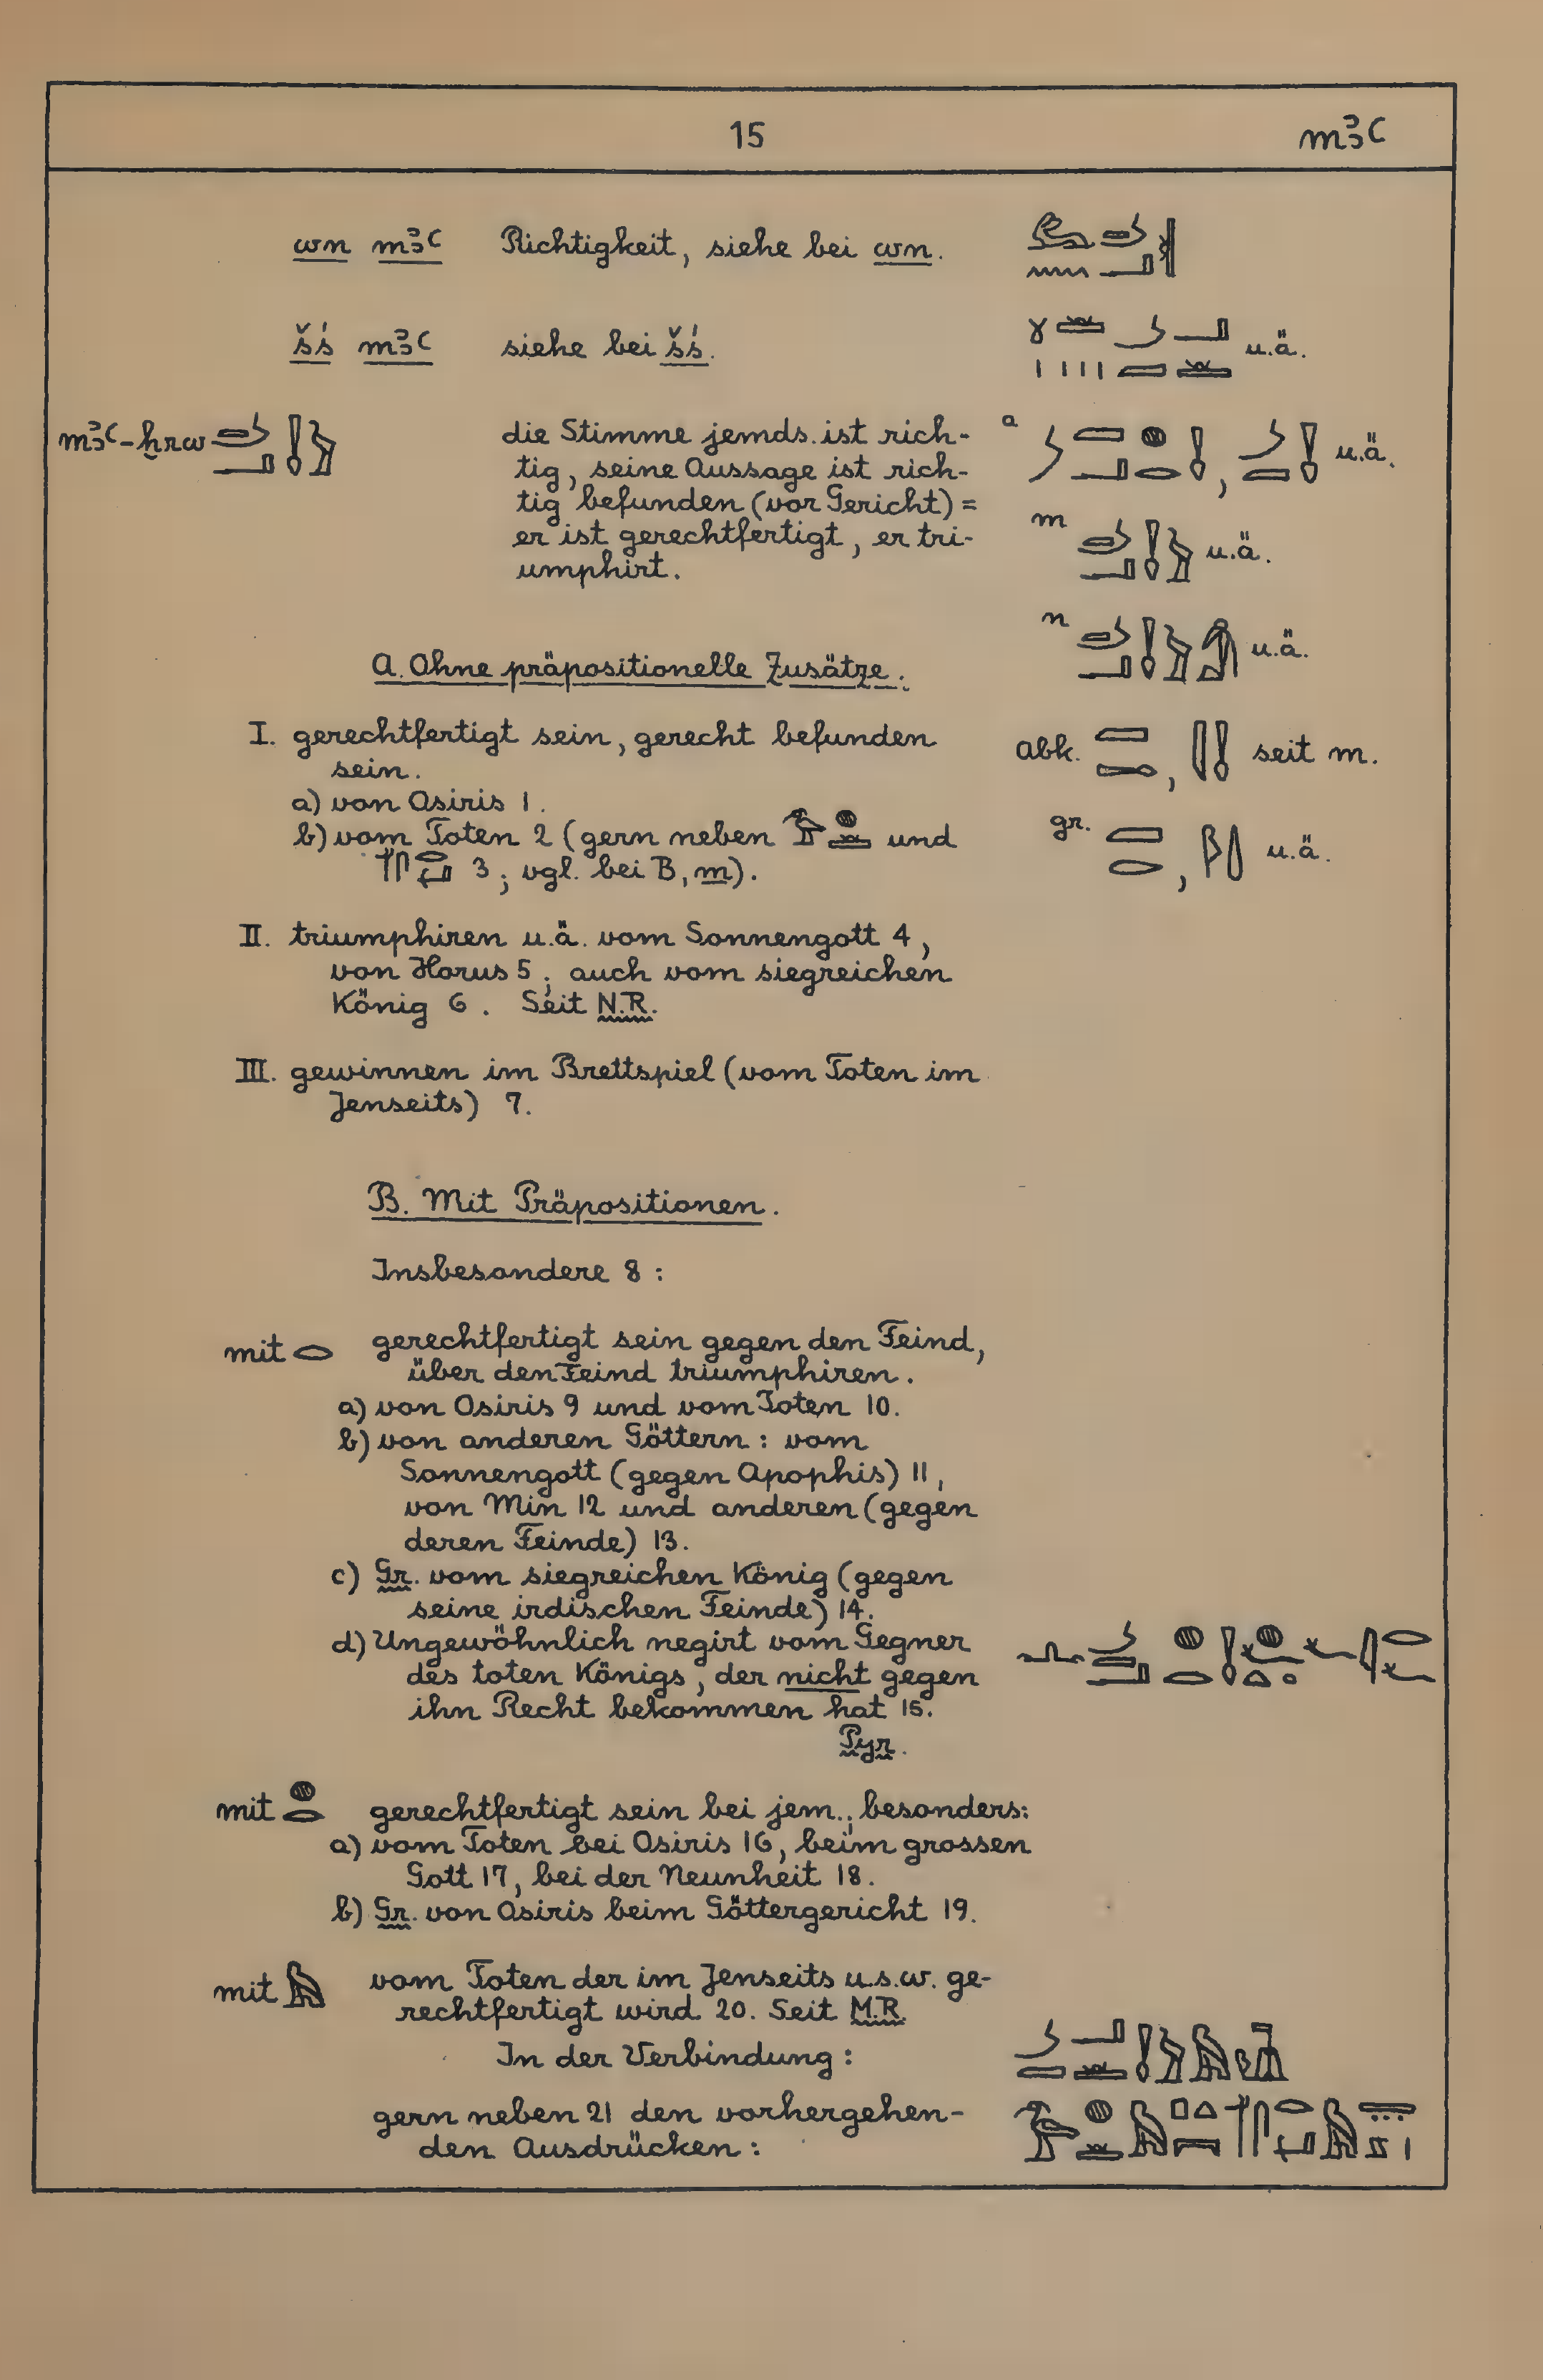 15 mꜣꜥ
wn mꜣꜥ Richtigkeit, siehe bei wn.
šś mꜣꜥ siehe bei šś. u.ä.
mꜣꜥ-ḫrw die Stimme jemds. ist rich-
a u.ä.
tig, seine Aussage ist rich-
tig befunden (vor Gericht) =
er ist gerechtfertigt, er tri-
m u.ä.
umphirt.
n u.ä.
A. Ohne präpositionelle Zusätze.
I. gerechtfertigt sein, gerecht befunden
sein.
abk. , seit m.
a) von Osiris 1.
b) vom Toten 2 (gern neben und
3; vgl. bei B, m).
gr. , u.ä.
II. triumphiren u.ä. vom Sonnengott 4,
von Horus 5; auch vom siegreichen
König 6. Seit N.R.
III. gewinnen im Brettspiel (vom Toten im
Jenseits) 7.
B. Mit Präpositionen.
Insbesondere 8:
mit gerechtfertigt sein gegen den Feind,
über den Feind triumphiren.
a) von Osiris 9 und vom Toten 10.
b) von anderen Göttern: vom
Sonnengott (gegen Apophis) 11,
von Min 12 und anderen (gegen
deren Feinde) 13.
c) Gr. vom siegreichen König (gegen
seine irdischen Feinde) 14.
d) Ungewöhnlich negirt vom Gegner
des toten Königs, der nicht gegen
ihn Recht bekommen hat 15.
Pyr.
mit gerechtfertigt sein bei jem.; besonders:
a) vom Toten bei Osiris 16, beim grossen
Gott 17, bei der Neunheit 18.
b) Gr. von Osiris beim Göttergericht 19.
mit vom Toten der im Jenseits u.s.w. ge-
rechtfertigt wird 20. Seit M.R.
In der Verbindung:
gern neben 21 den vorhergehen-
den Ausdrücken: